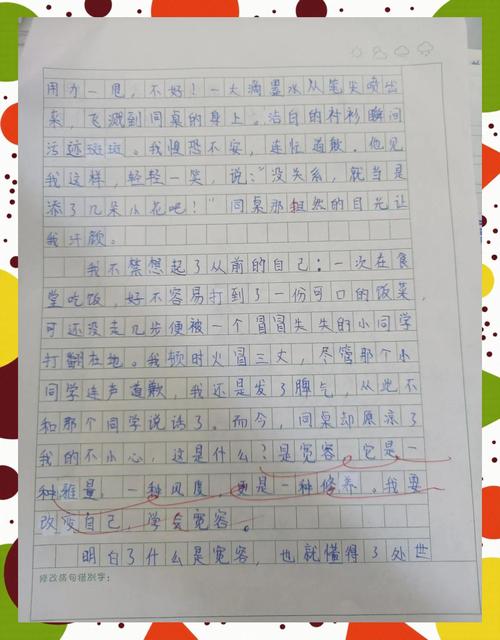 用力一甩，不好！一大滴墨水从笔尖喷出
来，飞溅到同桌的身上。洁白的衬衫瞬间
污迹斑斑。我惶恐不安，连忙道歉。他见
我这样，轻轻一笑，说："没关系，就当是
添了几朵小花吧！"同桌那坦然的目光让
我汗颜。
我不禁想起了从前的自己：一次在食
堂吃饭，好不容易打到了一份可口的饭菜，
可还没走几步便被一个冒冒失失的小同学
打翻在地。我顿时火冒三丈，尽管那个小
同学连声道歉，我还是发了脾气，从此不
和那个同学说话了。而今，同桌却原凉了
我的不小心，这是什么？是宽容。它是一
种雅量，一种风度，更是一种修养。我要
改变自己，学会宽容。
明白了什么是宽容，也就懂得了处世
修改病句错别字：